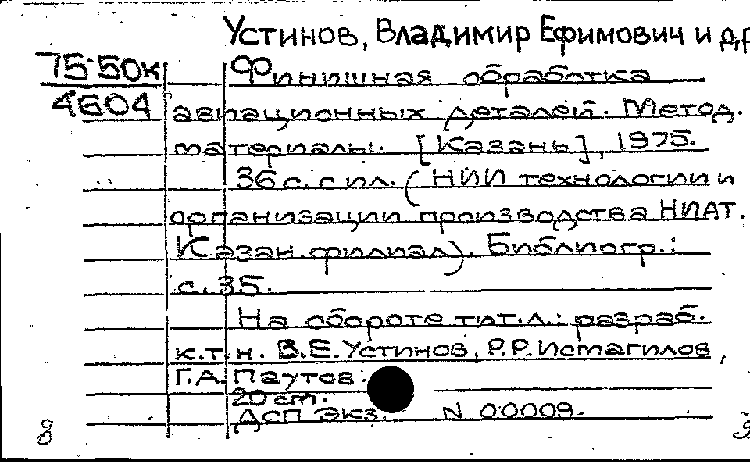 Устинов, Владимир Ефимович и др
75-50к Финишная обработка
4604 авиационных деталей. Метод.
материалы. [Казань], 1975.
36 с. с ил. (НИИ технологии и
организации производства НИАТ.
Казан. филиал). Библиогр.:
с. 35.
На обороте тит. л.: разраб.
к.т.н. В.Е. Устинов, Р.Р. Исмагилов,
Г.А. Паутов.
20 см.
ДСП Экз. N 00009.
8